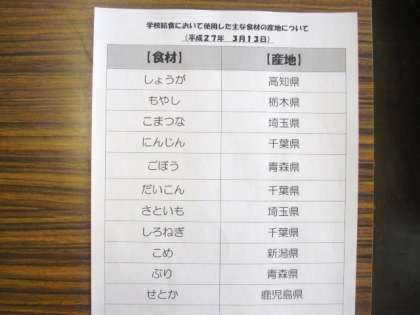 学校給食において使用した主な食材の産地について
（平成27年　3月13日）
【食材】　【産地】
しょうが　高知県
もやし　栃木県
こまつな　埼玉県
にんじん　千葉県
ごぼう　青森県
だいこん　千葉県
さといも　埼玉県
しろねぎ　千葉県
こめ　新潟県
ぶり　青森県
せとか　鹿児島県